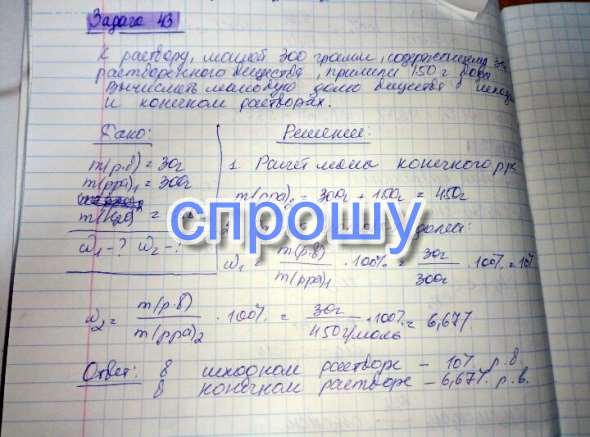 Задача 43
К раствору, массой 300 грамм, содержащему 30г
растворенного вещества, прилили 150 г воды
Вычислить массовую долю вещества в исход
и конечном растворах.
Дано:
Решение:
m(р.в) = 30г
1. Расчет массы конечного рра
m(рра)₁ = 300г
m(рра)₂ = 300г + 150г = 450г
m(H₂O) =
спрошу
доли:
ω₁ - ? ω₂ - ?
ω₁ = m(р.в) / m(рра)₁ · 100% = 30г / 300г · 100% = 10%
ω₂ = m(р.в) / m(рра)₂ · 100% = 30г / 450г/моль · 100% = 6,67%
Ответ: В исходном растворе – 10% р.в.
В конечном растворе – 6,67% р.в.